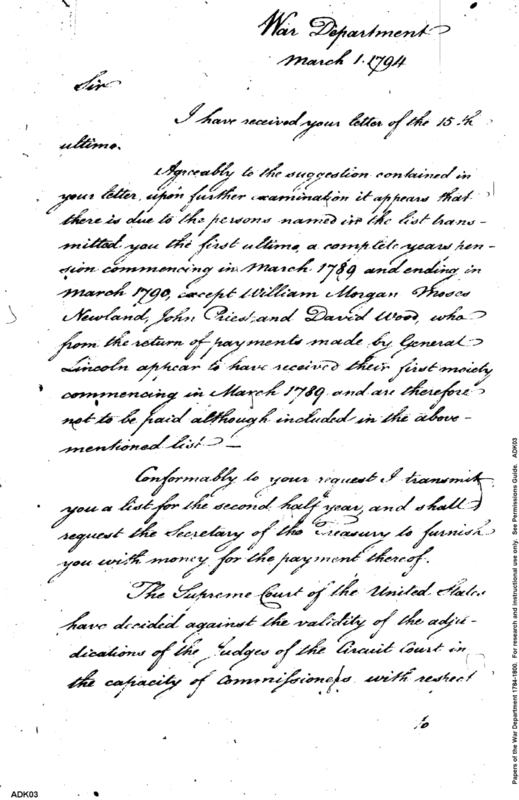 War Department
March 1. 1794
Sir
I have received your letter of the 15th
ultimo.
Agreeably to the suggestion contained in
your letter, upon further examination it appears that
there is due to the persons named in the list trans-
mitted you the first ultimo, a complete years pen-
sion commencing in March 1789 and ending in
March 1790, except William Morgan Moses
Newland, John Priest and David Wood, who
from the return of payments made by General
Lincoln appear to have received their first moiety
commencing in March 1789 and are therefore
not to be paid although included in the above-
mentioned list —
Conformably to your request I transmit
you a list for the second half year, and shall
request the Secretary of the Treasury to furnish
you with money for the payment thereof.
The Supreme Court of the United States
have decided against the validity of the adju-
dications of the Judges of the Circuit Court in
the capacity of Commissioners with respect
to
ADK03
Papers of the War Department 1784-1800. For research and instructional use only. See Permissions Guide. ADK03